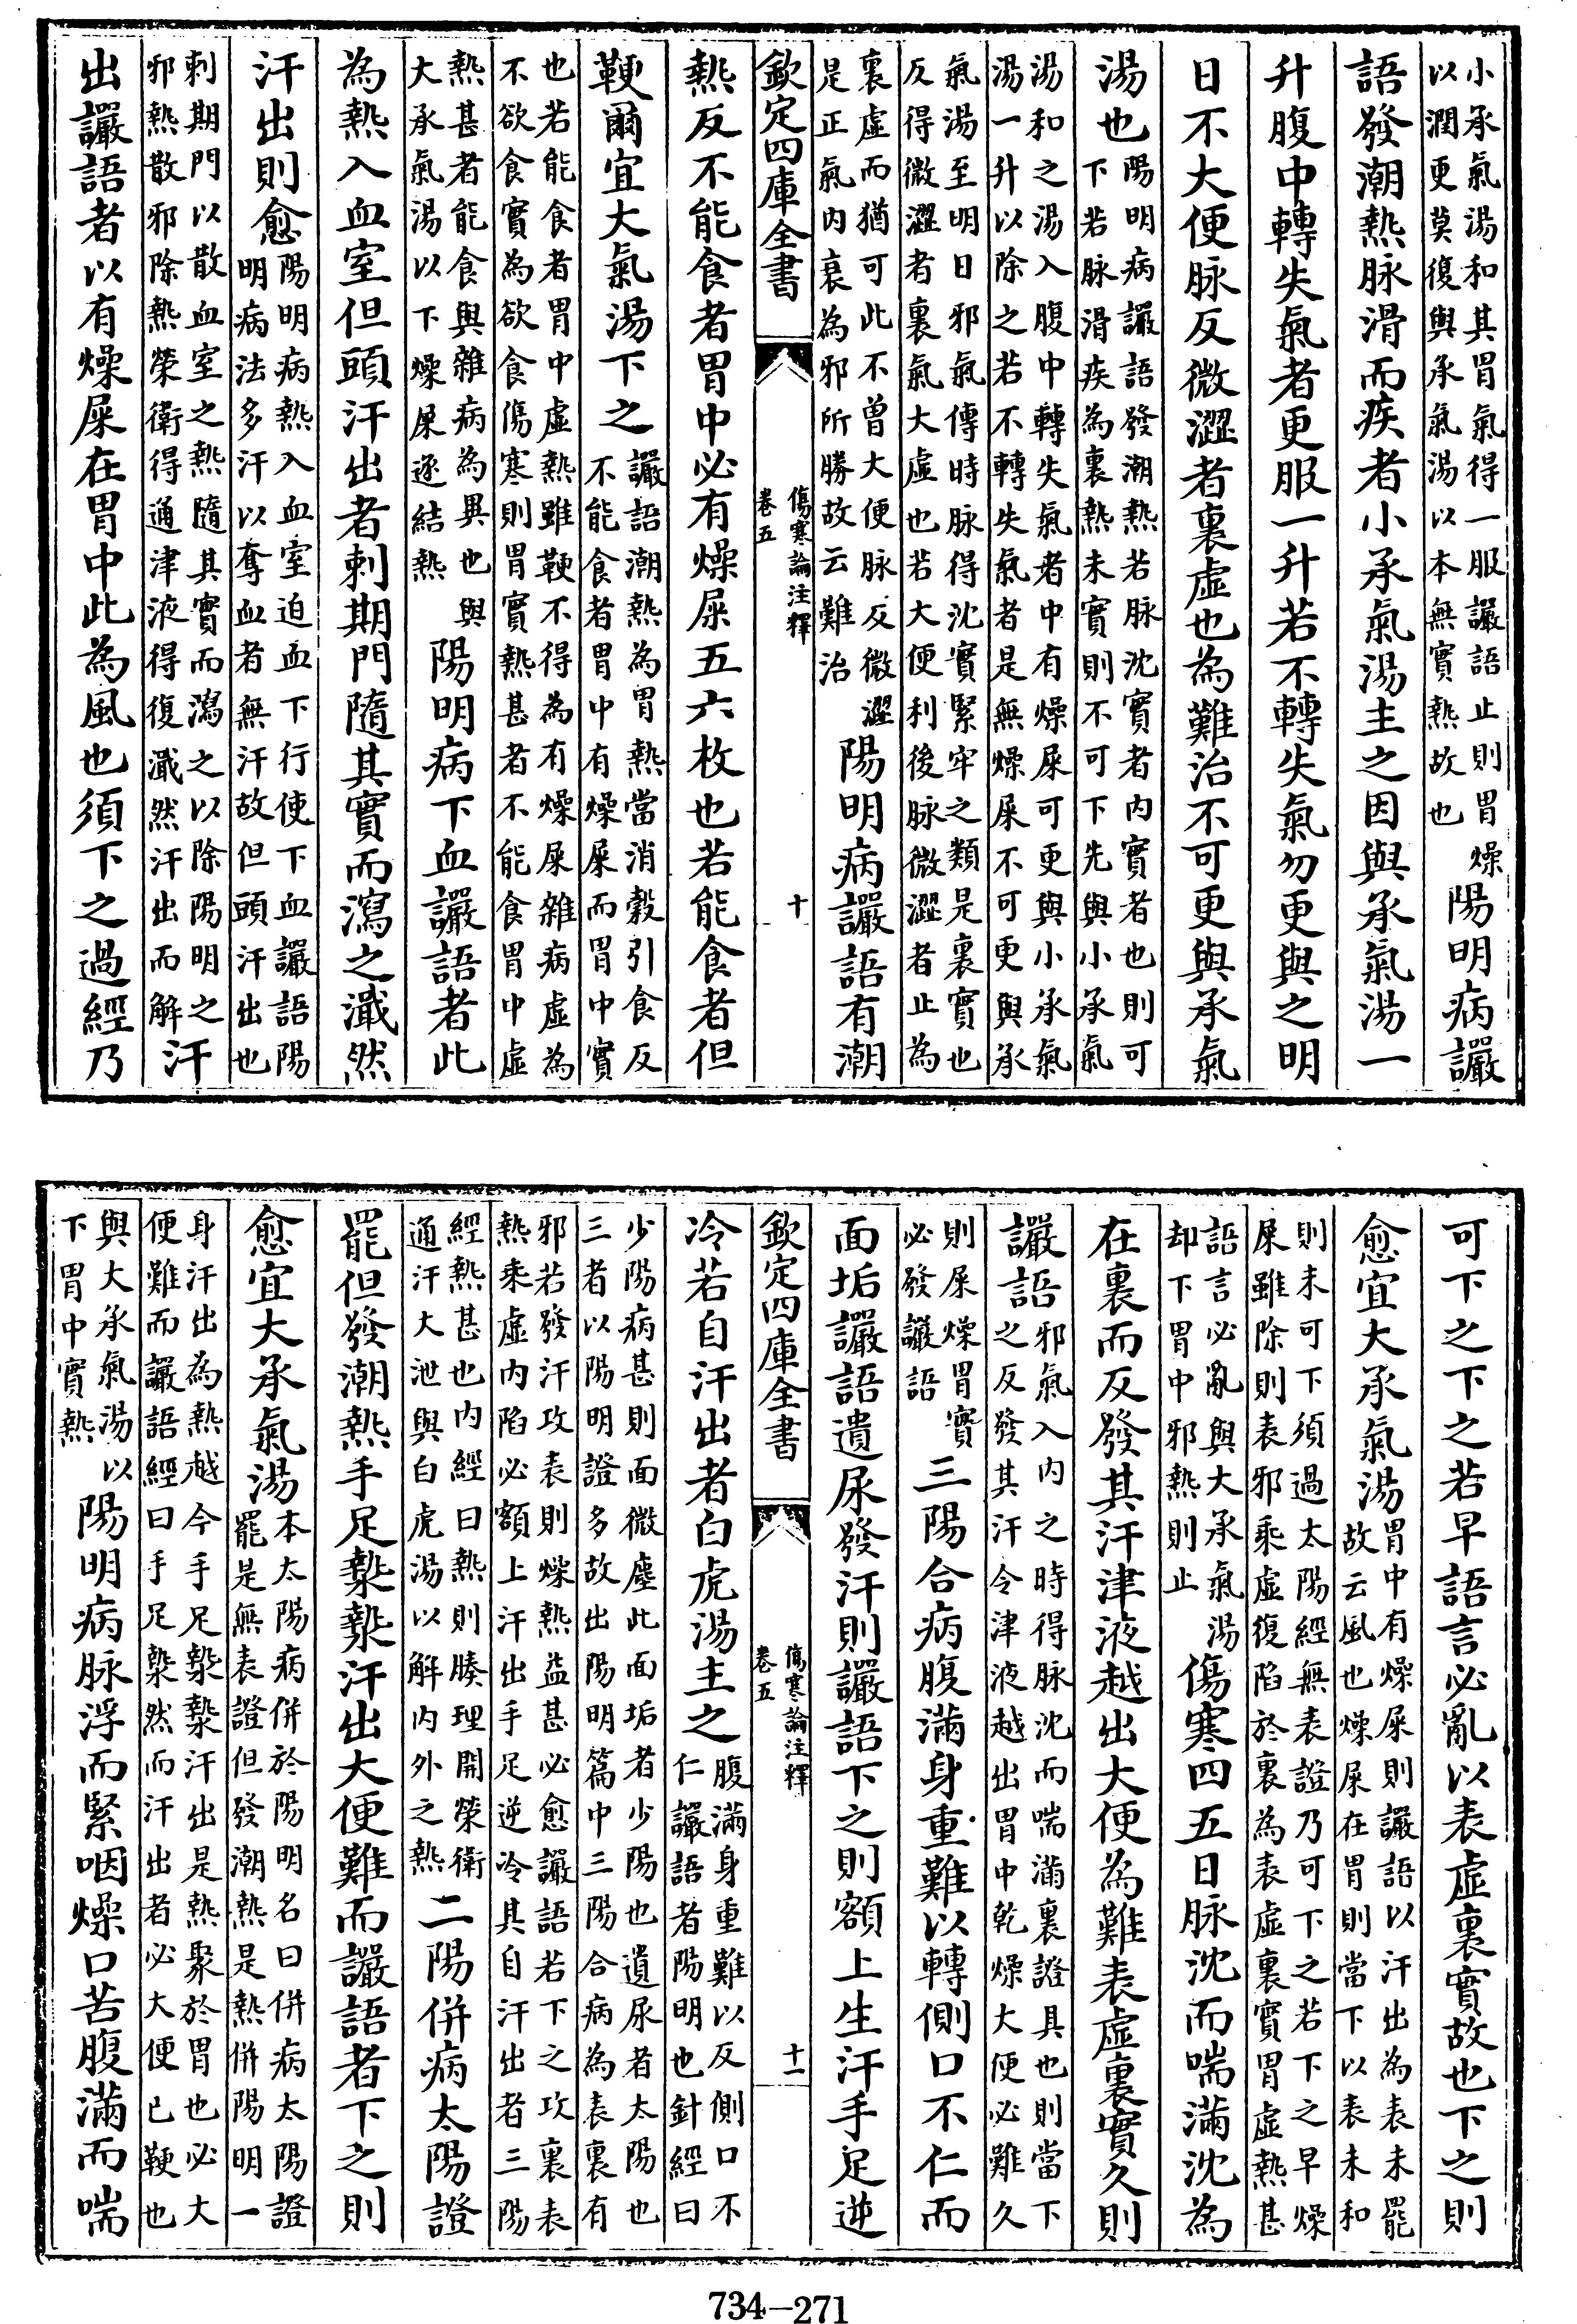 小承氣湯和其胃氣得一服讝語止則胃燥以潤更莫復與承氣湯以本無實熱故也陽明病讝
語發潮熱脉滑而疾者小承氣湯主之因與承氣湯一
升腹中轉失氣者更服一升若不轉失氣勿更與之明
日不大便脉反微澀者裏虛也為難治不可更與承氣
湯也陽明病讝語發潮熱若脉沈實者內實者也則可下若脉滑疾為裏熱未實則不可下先與小承氣
湯和之湯入腹中轉失氣者中有燥屎可更與小承氣湯一升以除之若不轉失氣者是無燥屎不可更與承
氣湯至明日邪氣傳時脉得沈實緊牢之類是裏實也反得微澀者裏氣大虛也若大便利後脉微澀者止為
裏虛而猶可此不曾大便脉反微澀是正氣內衰為邪所勝故云難治陽明病讝語有潮
欽定四庫全書 傷寒論注釋 卷五 十
熱反不能食者胃中必有燥屎五六枚也若能食者但
鞕爾宜大氣湯下之讝語潮熱為胃熱當消穀引食反不能食者胃中有燥屎而胃中實
也若能食者胃中虛熱雖鞕不得為有燥屎雜病虛為不欲食實為欲食傷寒則胃實熱甚者不能食胃中虛
熱甚者能食與雜病為異也與大承氣湯以下燥屎逐結熱陽明病下血讝語者此
為熱入血室但頭汗出者刺期門隨其實而瀉之濈然
汗出則愈陽明病熱入血室迫血下行使下血讝語陽明病法多汗以奪血者無汗故但頭汗出也
刺期門以散血室之熱隨其實而瀉之以除陽明之邪熱散邪除熱榮衛得通津液得復濈然汗出而解汗
出讝語者以有燥屎在胃中此為風也須下之過經乃
可下之下之若早語言必亂以表虛裏實故也下之則
愈宜大承氣湯胃中有燥屎則讝語以汗出為表未罷故云風也燥屎在胃則當下以表未和
則未可下須過太陽經無表證乃可下之若下之早燥屎雖除則表邪乘虛復陷於裏為表虛裏實胃虛熱甚
語言必亂與大承氣湯却下胃中邪熱則止傷寒四五日脉沈而喘滿沈為
在裏而反發其汗津液越出大便為難表虛裏實久則
讝語邪氣入內之時得脉沈而喘滿裏證具也則當下之反發其汗令津液越出胃中乾燥大便必難久
則屎燥胃實必發讝語三陽合病腹滿身重難以轉側口不仁而
面垢讝語遺尿發汗則讝語下之則額上生汗手足逆
欽定四庫全書 傷寒論注釋 卷五 十一
冷若自汗出者白虎湯主之腹滿身重難以反側口不仁讝語者陽明也針經曰
少陽病甚則面微塵此面垢者少陽也遺尿者太陽也三者以陽明證多故出陽明篇中三陽合病為表裏有
邪若發汗攻表則燥熱益甚必愈讝語若下之攻裏表熱乘虛內陷必額上汗出手足逆冷其自汗出者三陽
經熱甚也內經曰熱則腠理開榮衛通汗大泄與白虎湯以解內外之熱二陽併病太陽證
罷但發潮熱手足漐漐汗出大便難而讝語者下之則
愈宜大承氣湯本太陽病併於陽明名曰併病太陽證罷是無表證但發潮熱是熱併陽明一
身汗出為熱越今手足漐漐汗出是熱聚於胃也必大便難而讝語經曰手足漐然而汗出者必大便已鞕也
與大承氣湯以下胃中實熱陽明病脉浮而緊咽燥口苦腹滿而喘
734—271